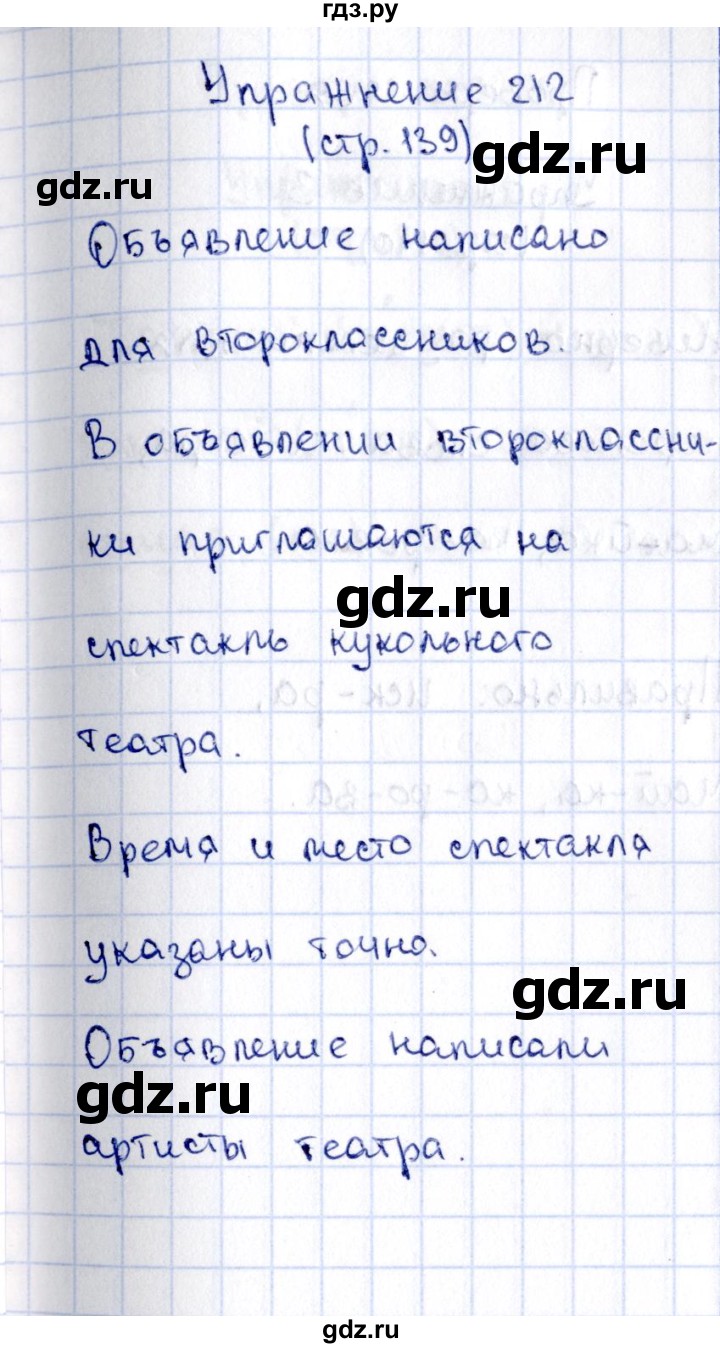 гдз.ру
Упражнение 212
(стр. 139)
gdz.ru
gdz.ru
Объявление написано
для второклассников.
В объявлении второклассни-
ки приглашаются на
gdz.ru
спектакль кукольного
театра.
Время и место спектакля
указаны точно.
gdz.ru
Объявление написали
gdz.ru
артисты театра.
gdz.ru